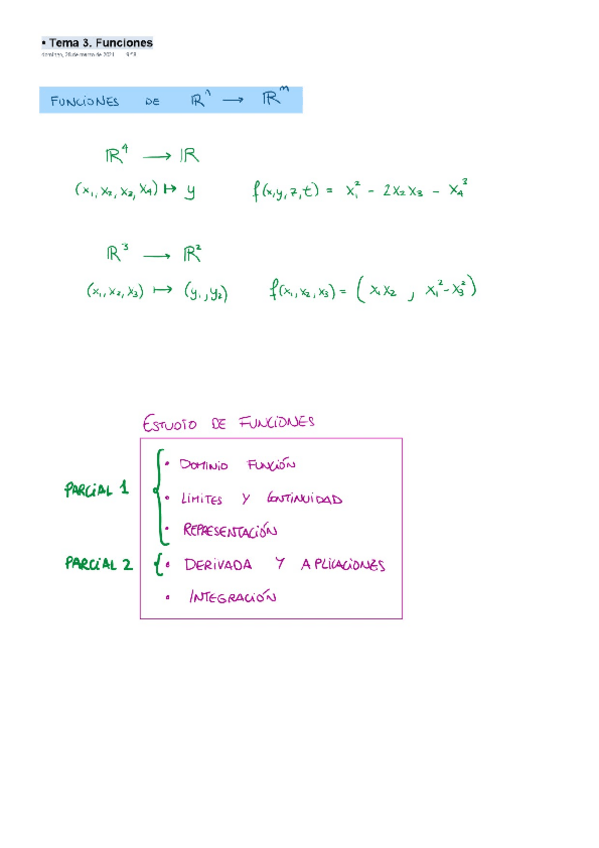 • Tema 3. Funciones
domingo, 28 de marzo de 2021
FUNCIONES DE ℝⁿ → ℝᵐ
ℝ⁴ → ℝ
(x₁, x₂, x₃, x₄) ↦ y f(x,y,z,t) = x₁² - 2x₂x₃ - x₄³
ℝ³ → ℝ²
(x₁, x₂, x₃) ↦ (y₁, y₂) f(x₁, x₂, x₃) = (x₁x₂ , x₁² - x₃²)
ESTUDIO DE FUNCIONES
• DOMINIO FUNCIÓN
PARCIAL 1
• LÍMITES Y CONTINUIDAD
• REPRESENTACIÓN
PARCIAL 2 • DERIVADA Y APLICACIONES
• INTEGRACIÓN